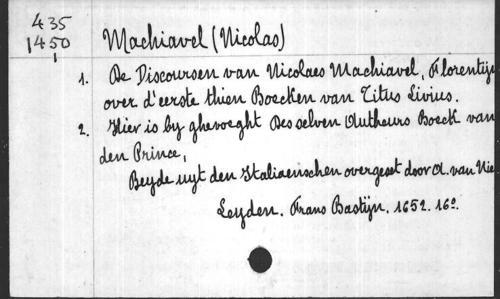 435
1450
1
Machiavel (Nicolas)
1. De Discoursen van Nicolaes Machiavel, Florentijn
over d'eerste thien Boecken van Titus Livius.
2. Hier is by ghevoeght Des selven Autheurs Boeck van
den Prince,
Beyde uyt den Italiaenschen overgeset door A. van Nie
Leyden. Frans Bastijn. 1652. 16º.